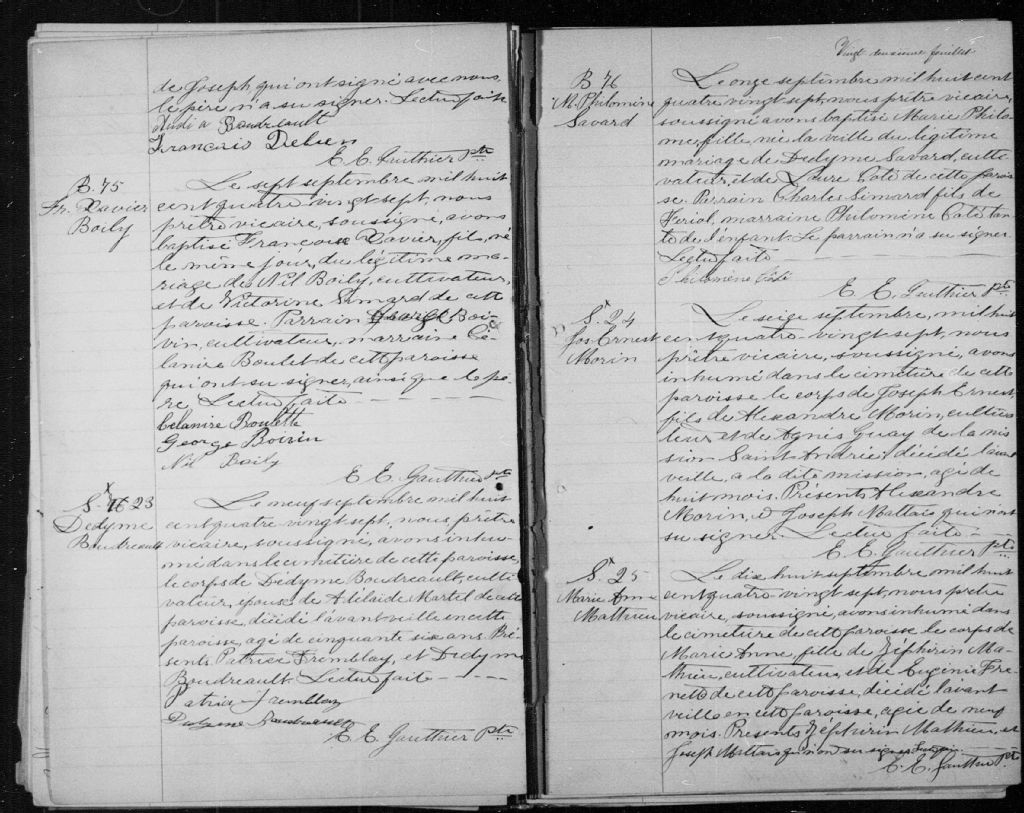 de Joseph, qui ont signé avec nous
le père n'a su signer. Lecture faite
Boudreault
François
E. E. Gauthier Ptr
B. 75
Fr. Xavier
Boily
Le sept septembre mil huit
cent quatre vingt sept, nous
prêtre vicaire, soussigné, avons
baptisé François Xavier, fils, né
le même jour, du légitime ma-
riage de Nil Boily, cultivateur,
et de Victorine Simard de cette
paroisse. Parrain George Boi-
vin, cultivateur, marraine Cé-
lanire Boulet de cette paroisse
qui ont su signer, ainsi que le pè-
re Lecture faite
Celanire Boulette
George Boivin
Nil Boily
E. E. Gauthier ptr
S. 23
Dedyme
Boudreault
Le neuf septembre mil huit
cent quatre vingt sept, nous prêtre
vicaire, soussigné, avons inhu-
mé dans le cimetière de cette paroisse,
le corps de Dedyme Boudreault, culti-
vateur, époux de Adélaide Martel de cette
paroisse, décédé l'avant veille en cette
paroisse, agé de cinquante six ans. Pré-
sents Patrice Tremblay, et Dedyme
Boudreault. Lecture faite
Patrice Tremblay
Dedyme Boudreault
E. E. Gauthier Ptr
Vingt feuillet
B 76
M. Philomène
Savard
Le onze septembre mil huit cent
quatre vingt sept, nous prêtre vicaire,
soussigné avons baptisé Marie Philo-
mène, fille, née la veille du légitime
mariage de Dedyme Savard, culti-
vateur, et de Laure Coté de cette parois-
se. Parrain Charles Simard fils de
Fériol, marraine Philomène Coté tan-
te de l'enfant. Le parrain n'a su signer
Lecture faite
Philomène Coté
E. E. Gauthier Ptr
S. 24
Jos. Ernest
Morin
Le seize septembre, mil huit
cent quatre-vingt-sept, nous
prêtre vicaire, soussigné, avons
inhumé dans le cimetière de cette
paroisse le corps de Joseph Ernest
fils de Alexandre Morin, cultiva-
teur, et de Agnès Guay de la mis-
sion Saint André, décédé l'avant
veille, a la dite mission, agé de
huit mois. Présents Alexandre
Morin, & Joseph Mattais qui n'ont
su signer Lecture faite
E. E. Gauthier Ptr
S. 25
Marie Anne
Mathieu
Le dix huit septembre mil huit
cent quatre vingt sept, nous prêtre
vicaire, soussigné, avons inhumé dans
le cimetière de cette paroisse le corps de
Marie Anne, fille de Zéphirin Ma-
thieu, cultivateur, et de Eugénie Fre-
nette de cette paroisse, décédé l'avant
veille en cette paroisse, agée de neuf
mois. Présents Zéphirin Mathieu, et
Joseph Mattais qui n'on su signer
E. E. Gauthier Pt.